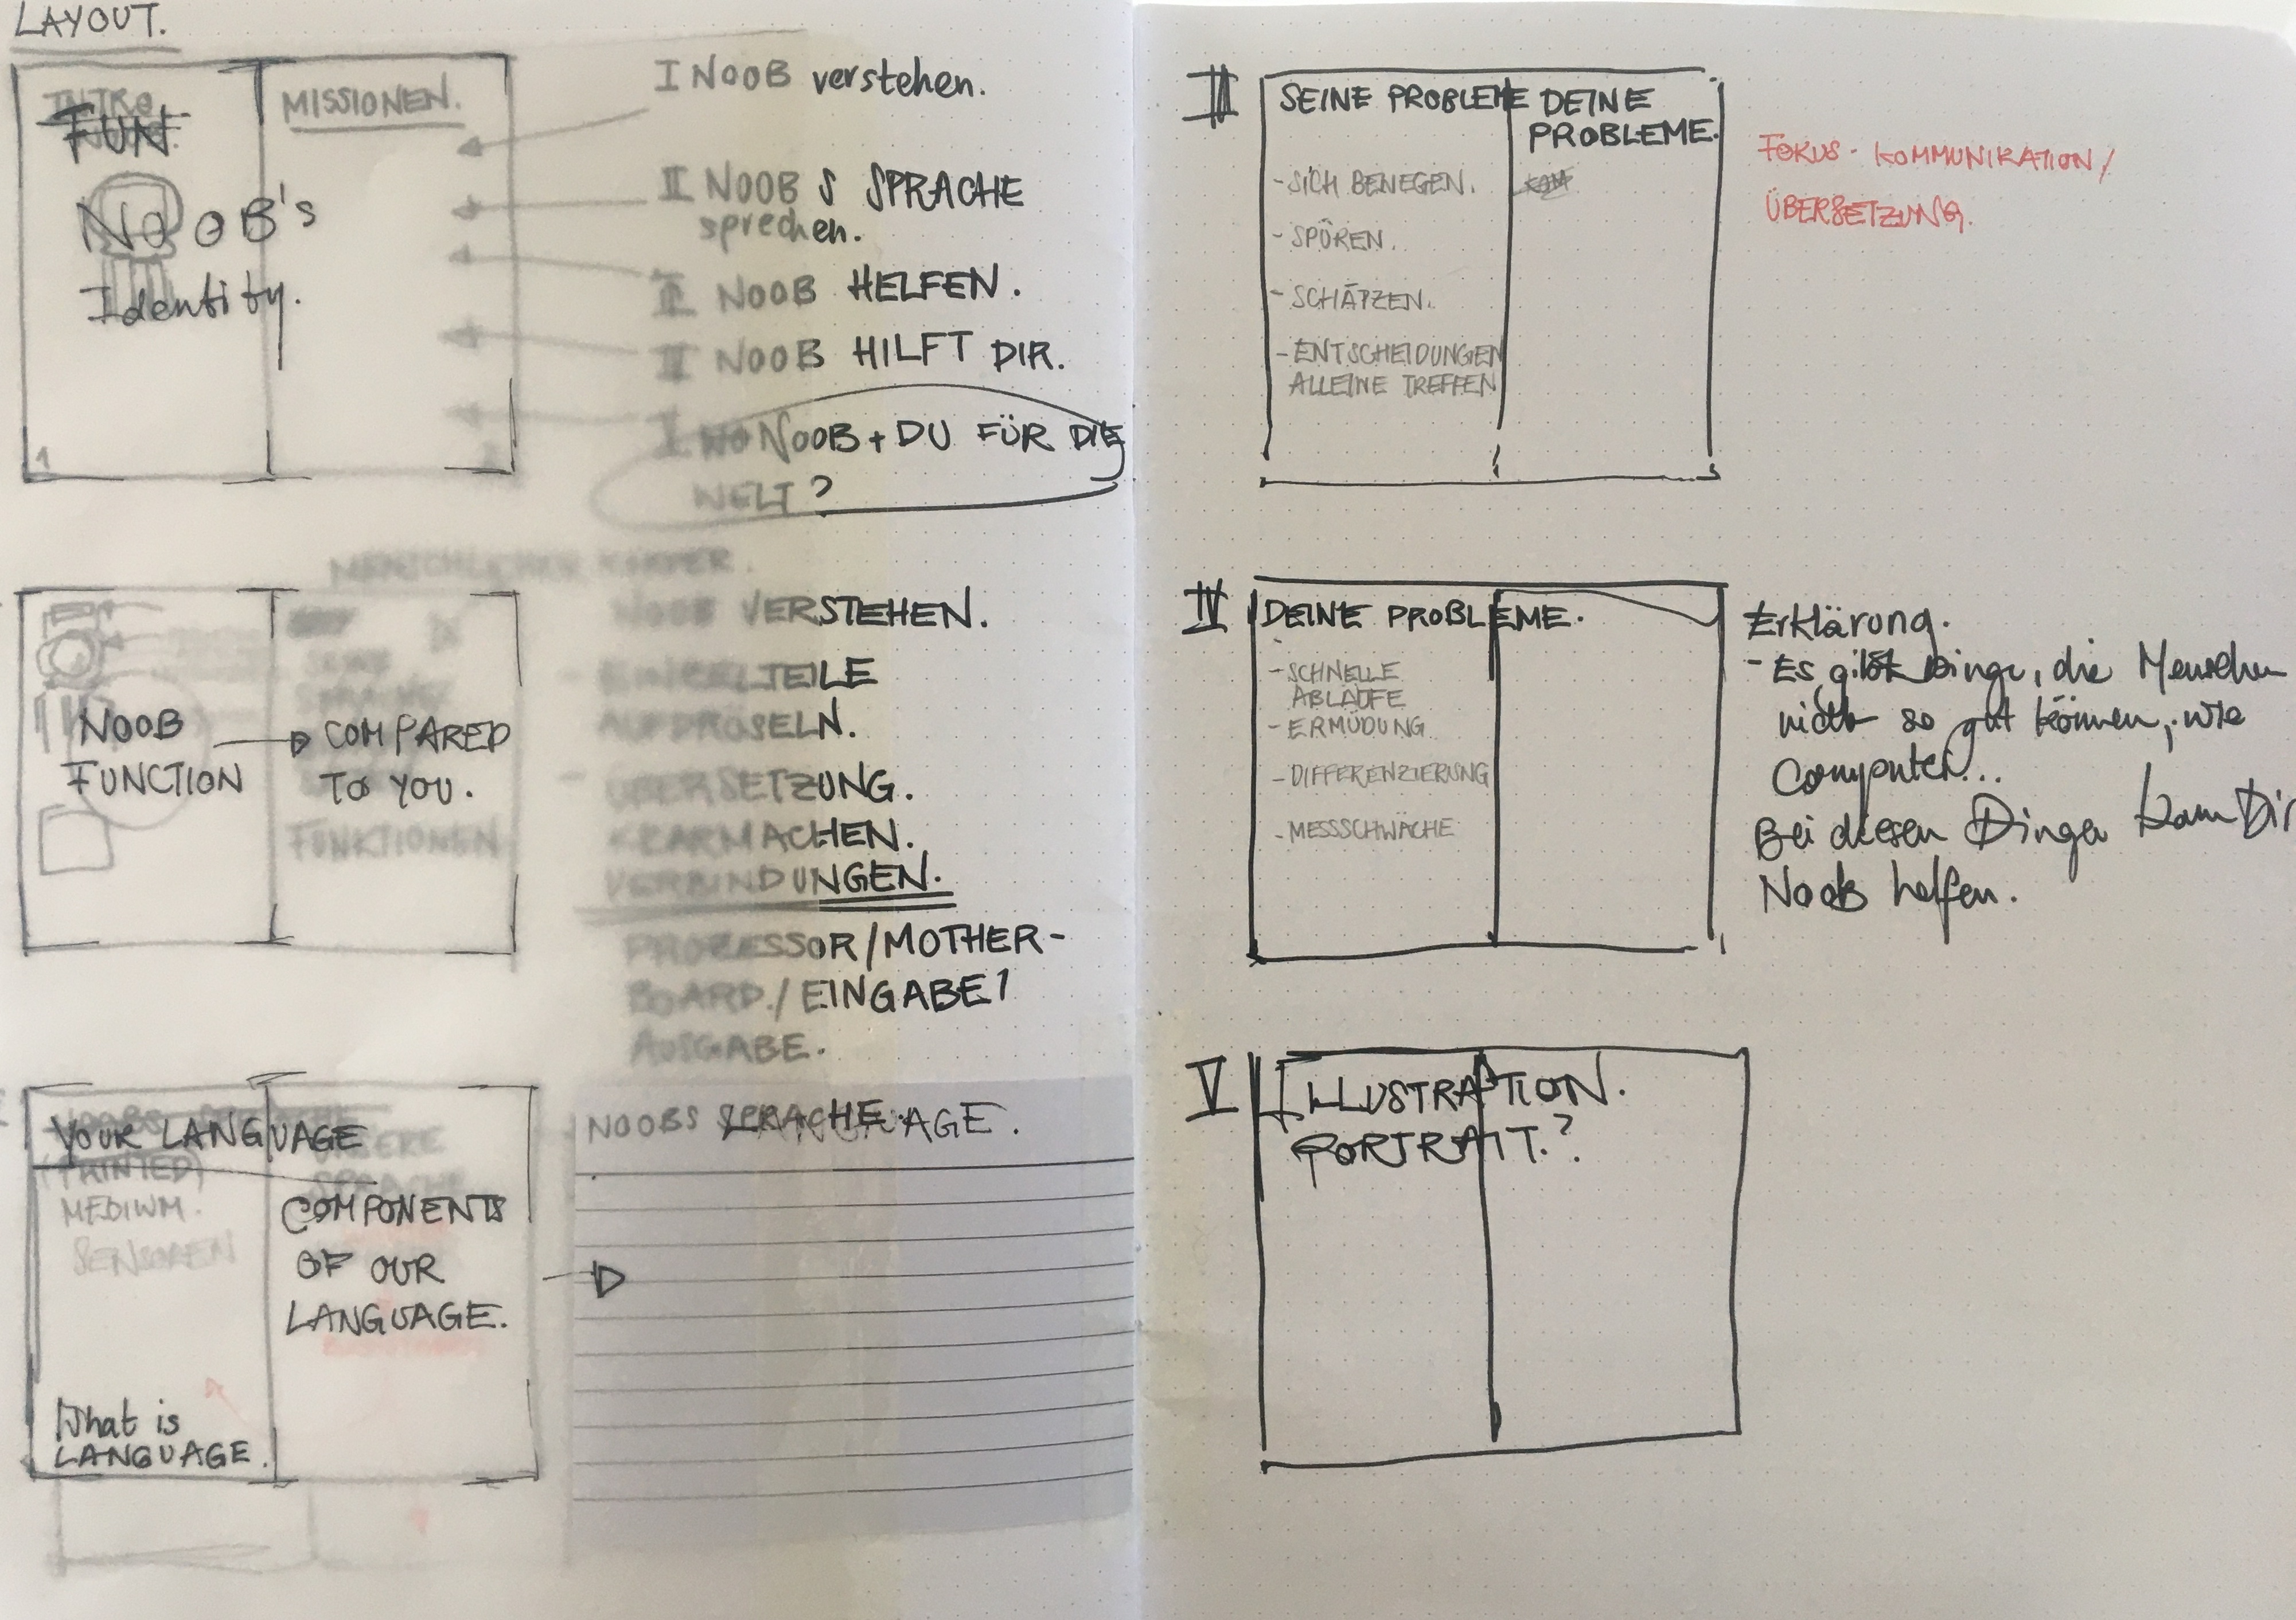 LAYOUT.
INTRO
FUN
NOOB's
Identity.
1
MISSIONEN.
I NOOB verstehen.
II NOOBS SPRACHE
sprechen.
III NOOB HELFEN.
NOOB HILFT DIR.
NOOB + DU FÜR DIE
WELT?
MENSCHLICHER KÖRPER.
NOOB
FUNCTION
COMPARED
TO YOU.
FUNKTIONEN
NOOB VERSTEHEN.
- EINZELTEILE
AUFDRÖSELN.
- ÜBERSETZUNG.
KLARMACHEN.
VERBINDUNGEN.
PROZESSOR/MOTHER-
BOARD./EINGABE/
AUSGABE.
YOUR LANGUAGE
MEDIUM.
SENSOREN
What is
LANGUAGE.
SPRACHE
COMPONENTS
OF OUR
LANGUAGE.
NOOBS SPRACHE.
LANGUAGE.
III
SEINE PROBLEME
- SICH BEWEGEN.
- SPÜREN.
- SCHÄTZEN.
- ENTSCHEIDUNGEN
ALLEINE TREFFEN
DEINE
PROBLEME.
FOKUS - KOMMUNIKATION/
ÜBERSETZUNG.
IV
DEINE PROBLEME.
- SCHNELLE
ABLÄUFE
- ERMÜDUNG
- DIFFERENZIERUNG
- MESSSCHWÄCHE
Erklärung.
- Es gibt Dinge, die Menschen
nicht so gut können, wie
Computer...
Bei diesen Dingen kann Dir
Noob helfen.
V
ILLUSTRATION.
PORTRAIT.?